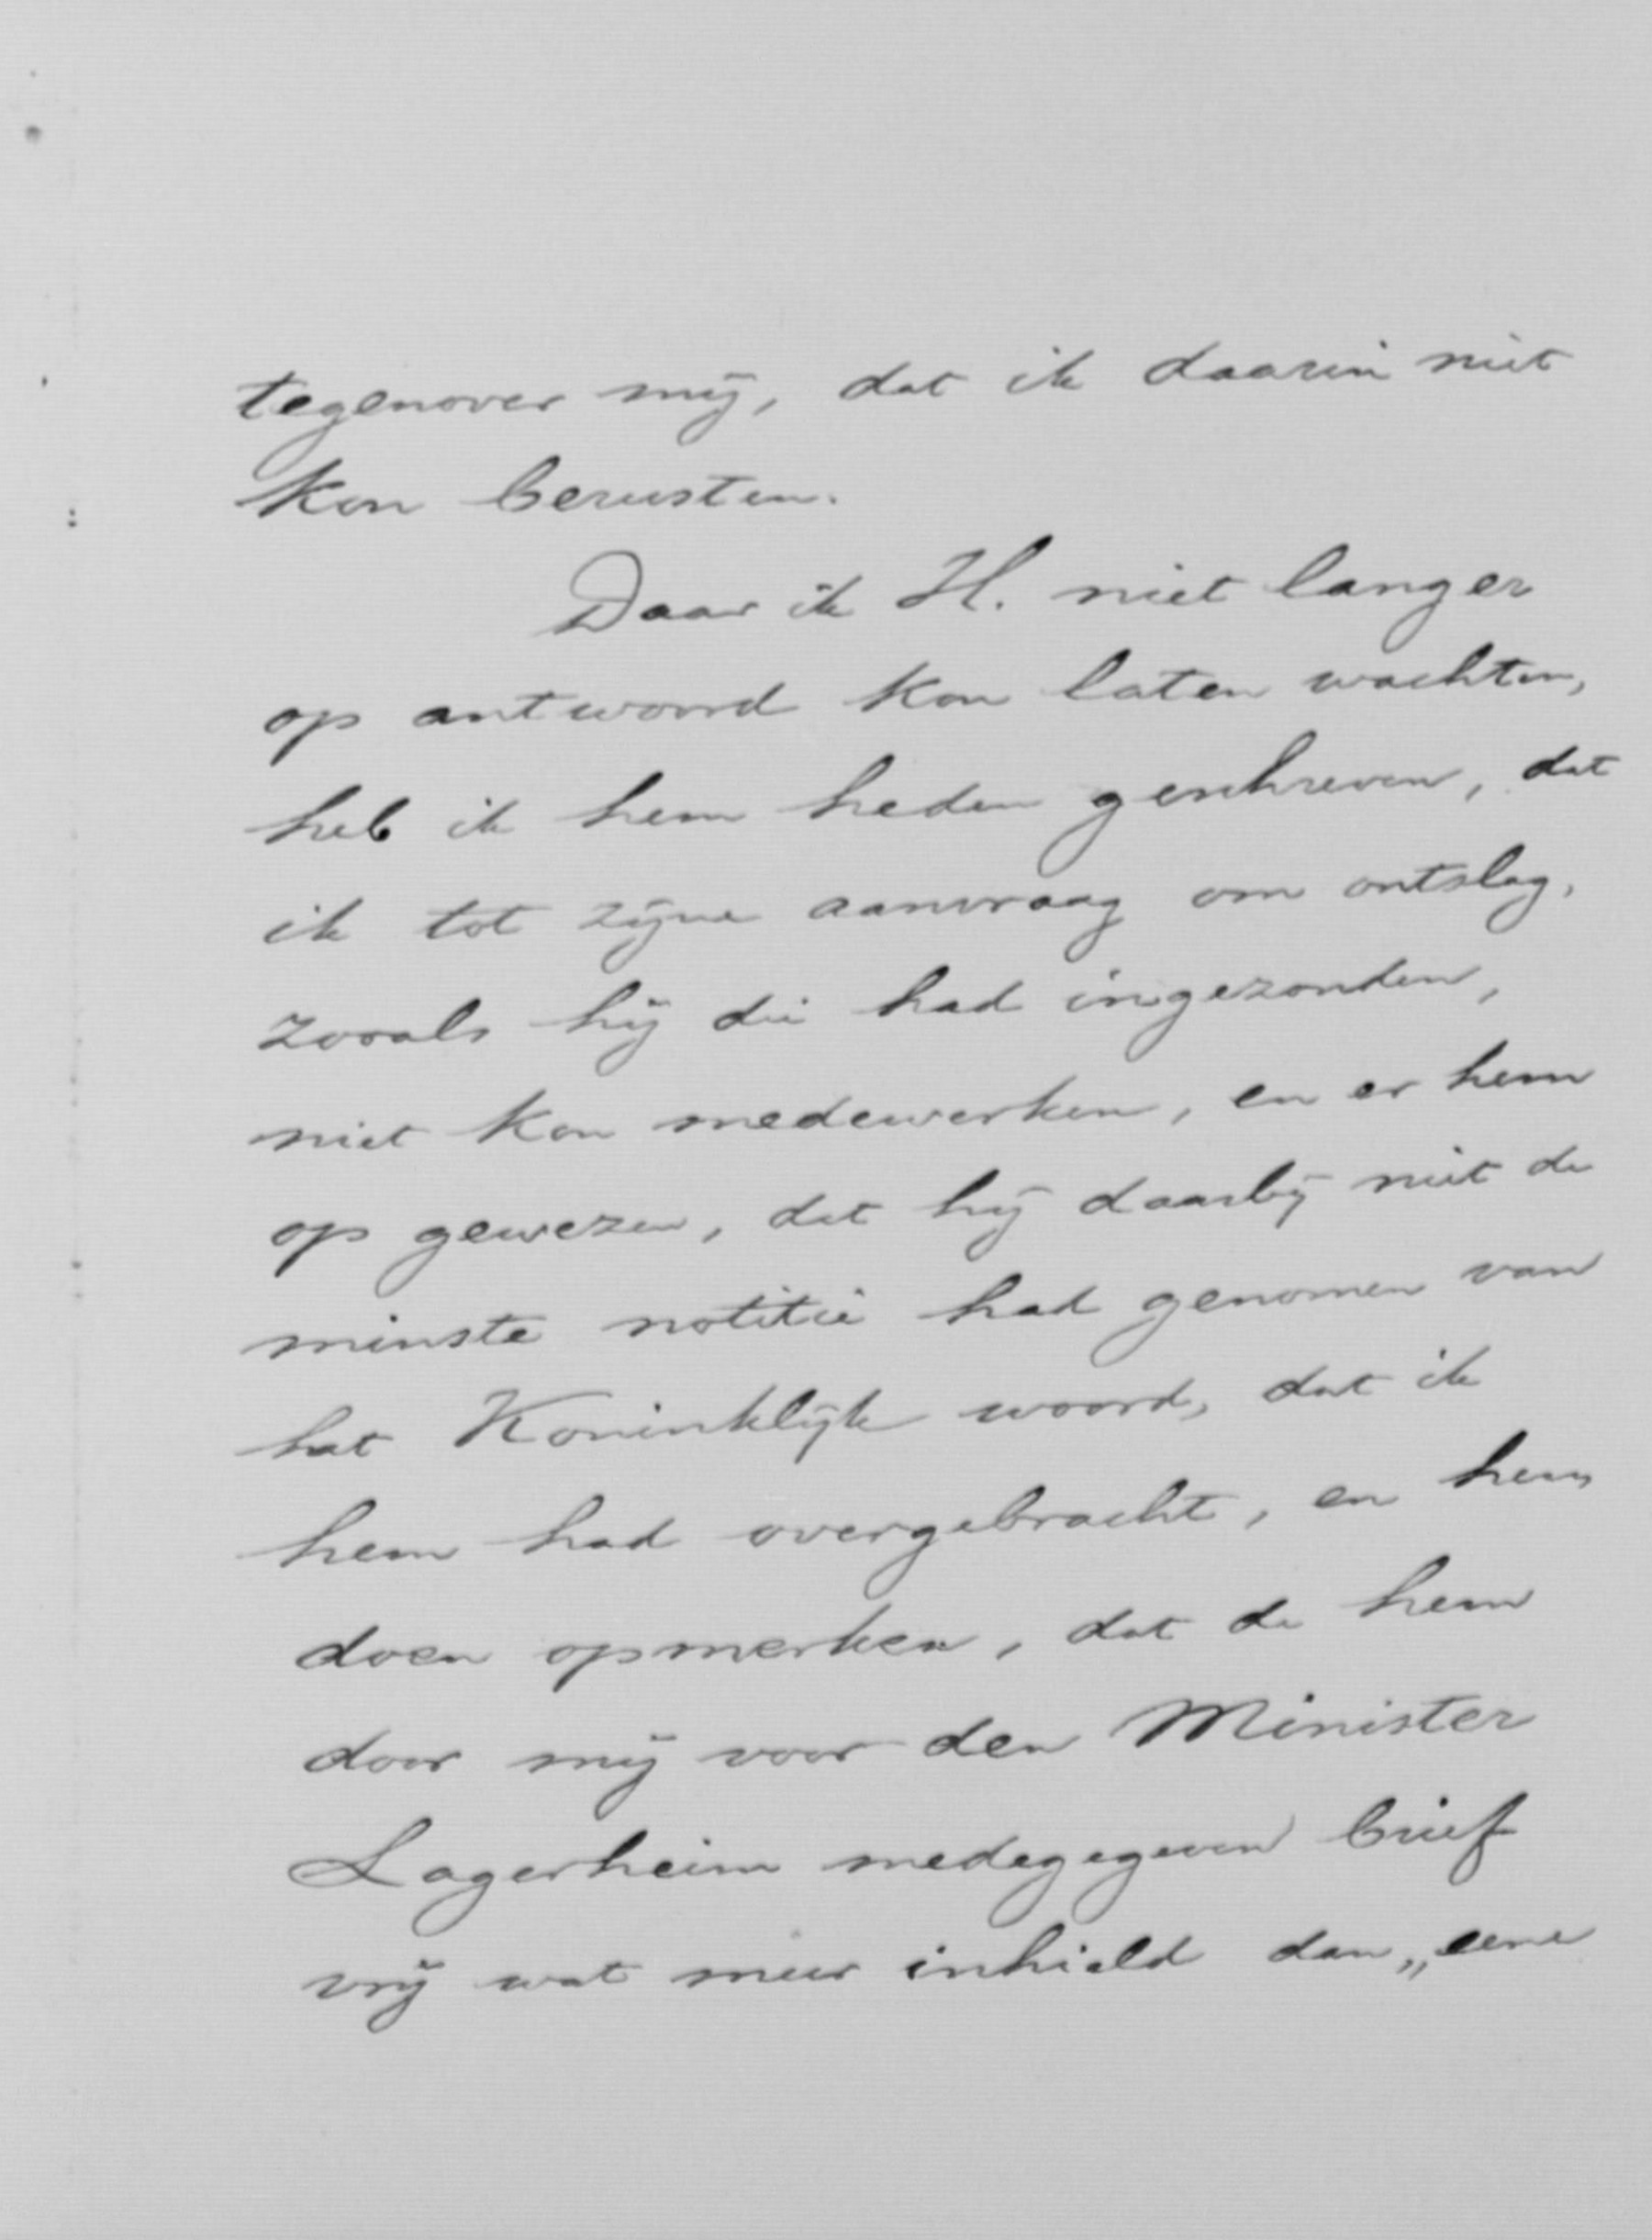 tegenover mij, dat ik daarin niet
kon berusten.
Daar ik H. niet langer
op antwoord kon laten wachten,
heb ik hem heden geschreven, dat
ik tot zijne aanvraag om ontslag,
zooals hij die had ingezonden,
niet kon medewerken, en er hem
op gewezen, dat hij daarbij niet de
minste notitie had genomen van
het Koninklijk woord, dat ik
hem had overgebracht, en hem
doen opmerken, dat de hem
door mij voor den Minister
Lagerheim medegegeven brief
vrij wat meer inhield dan „eene